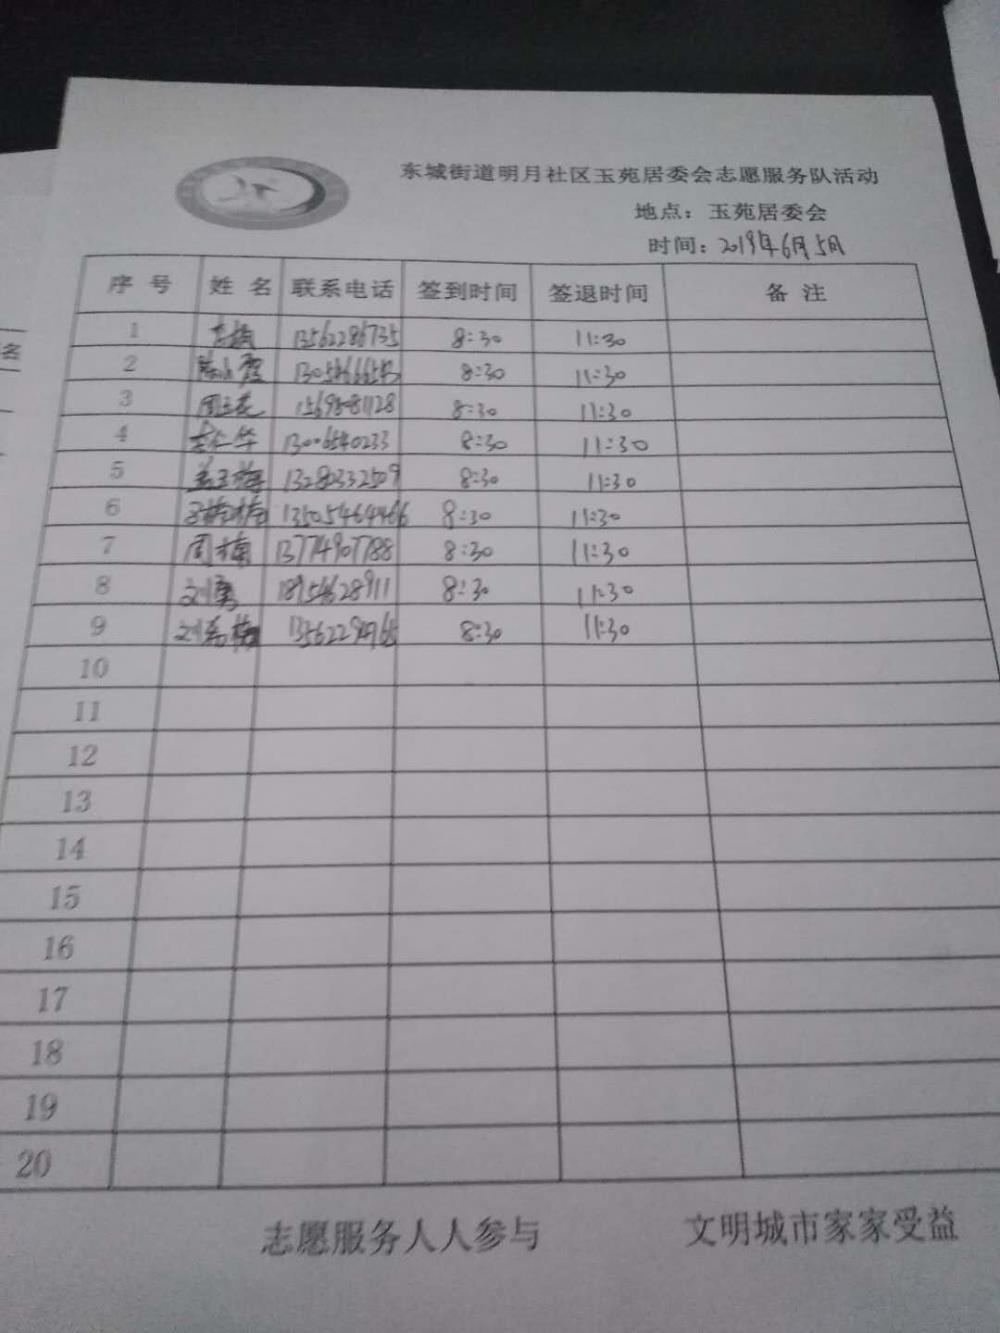 东城街道明月社区玉苑居委会志愿服务队活动
地点：玉苑居委会
时间：2019年6月5日
序号 姓名 联系电话 签到时间 签退时间 备注
1 13562286735 8:30 11:30
2 8:30 11:30
3 周玉花 8:30 11:30
4 13006540233 8:30 11:30
5 13280332509 8:30 11:30
6 13505464466 8:30 11:30
7 周楠 13774907788 8:30 11:30
8 刘勇 18954628911 8:30 11:30
9 8:30 11:30
10
11
12
13
14
15
16
17
18
19
20
志愿服务人人参与 文明城市家家受益
名